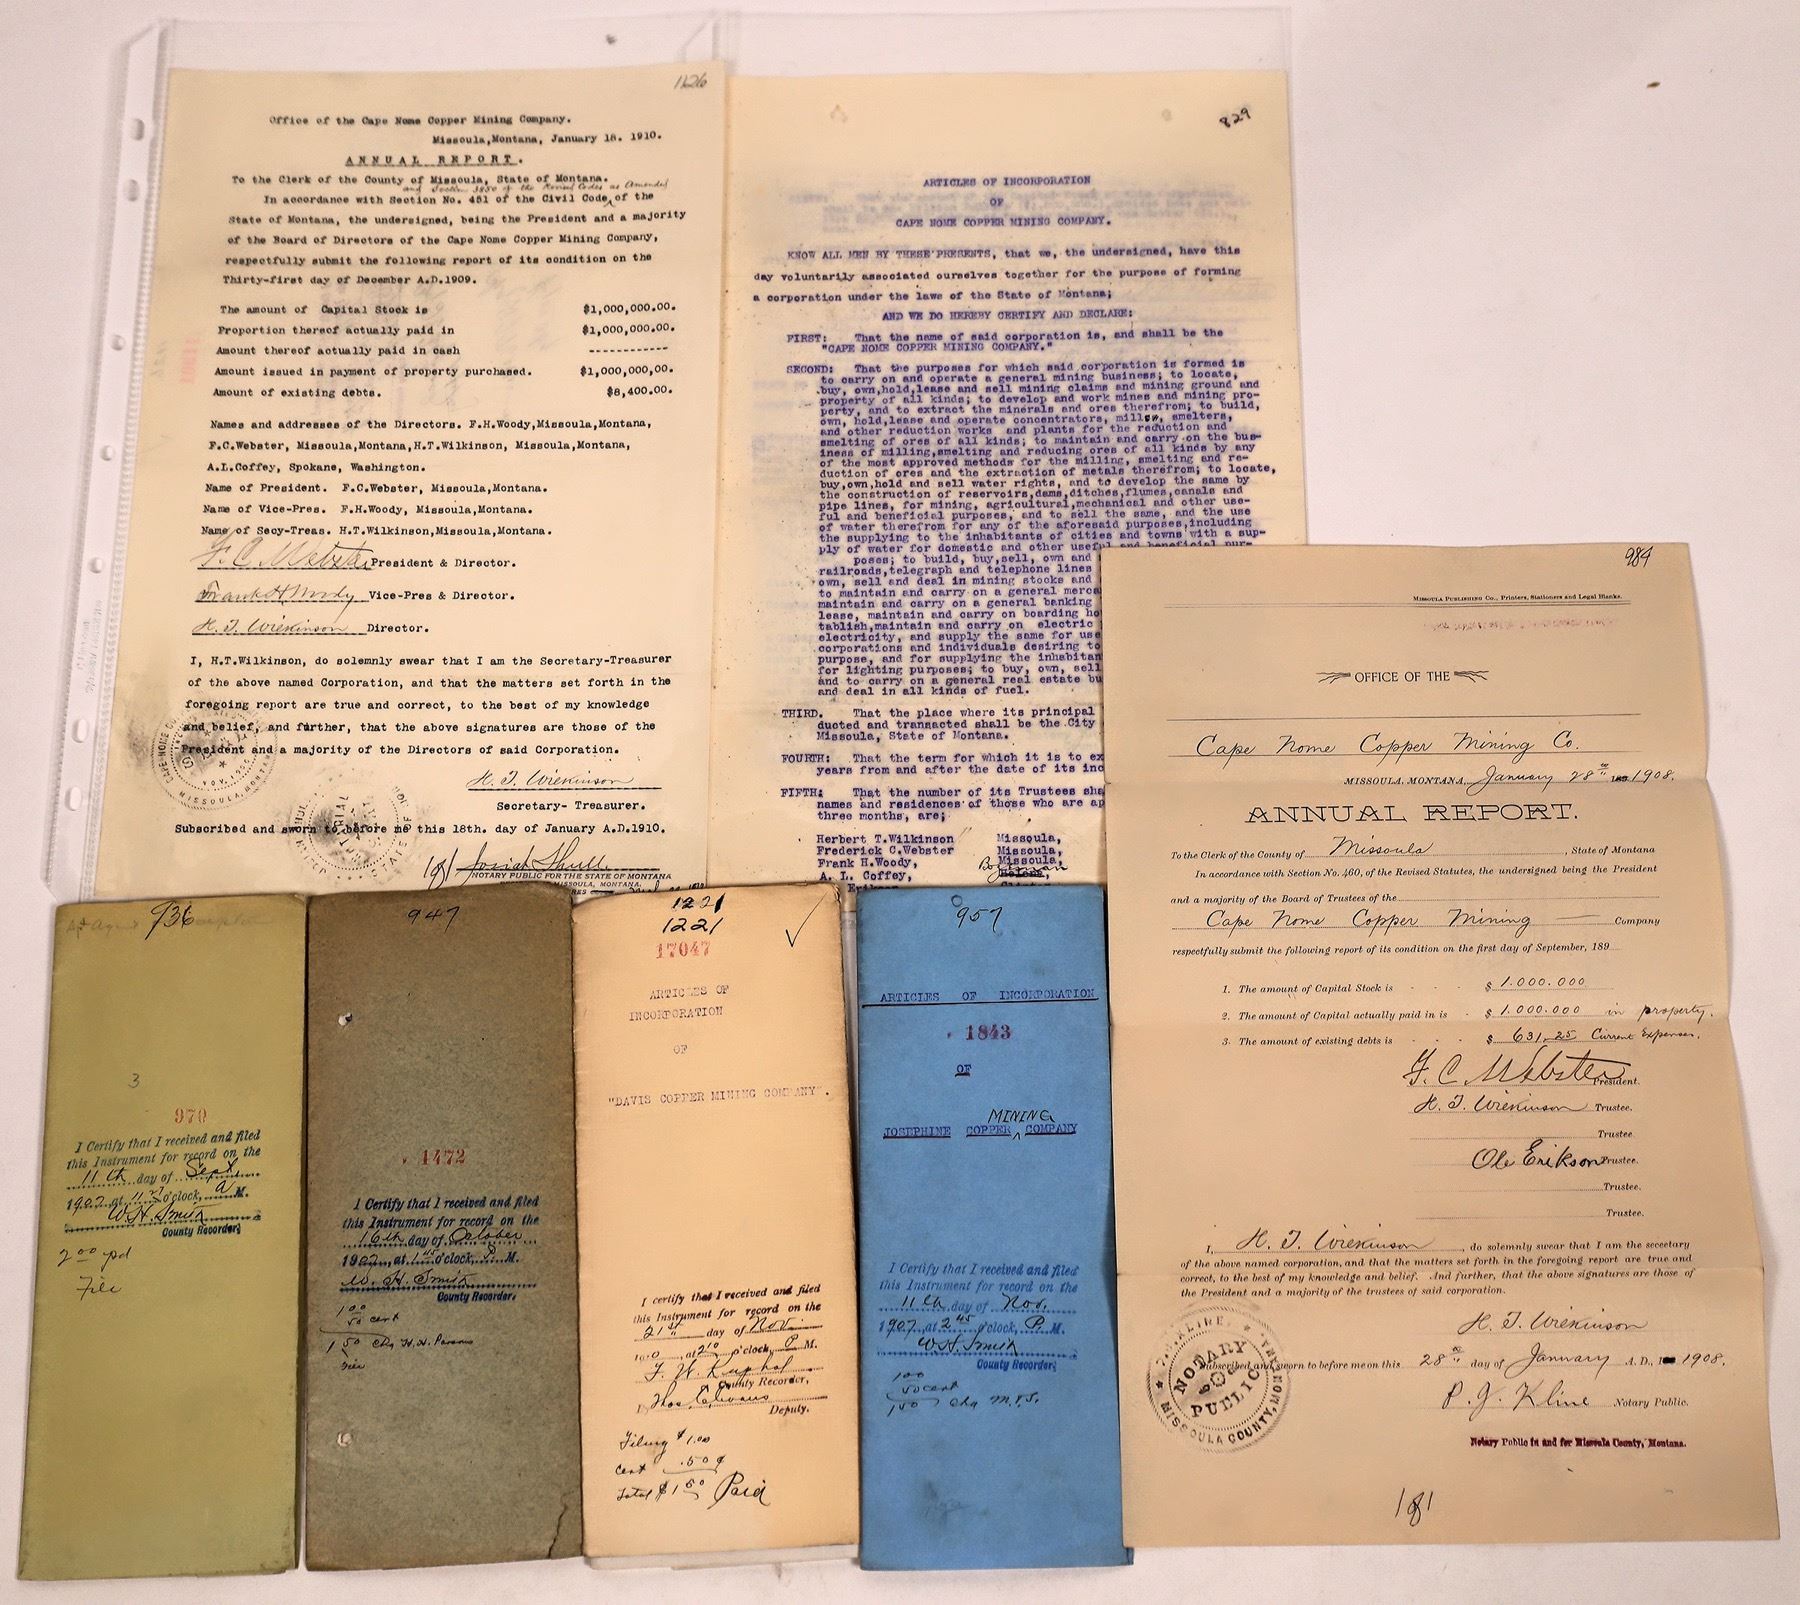 1126
Office of the Cape Nome Copper Mining Company.
Missoula,Montana, January 18. 1910.
ANNUAL REPORT.
To the Clerk of the County of Missoula, State of Montana.
and Section 3850 of the Revised Codes as Amended
In accordance with Section No. 451 of the Civil Code, of the
State of Montana, the undersigned, being the President and a majority
of the Board of Directors of the Cape Nome Copper Mining Company,
respectfully submit the following report of its condition on the
Thirty-first day of December A.D.1909.
The amount of Capital Stock is $1,000,000.00.
Proportion thereof actually paid in $1,000,000.00.
Amount thereof actually paid in cash ------------
Amount issued in payment of property purchased. $1,000,000,00.
Amount of existing debts. $8,400.00.
Names and addresses of the Directors. F.H.Woody,Missoula,Montana,
F.C.Webster, Missoula,Montana,H.T.Wilkinson, Missoula,Montana,
A.L.Coffey, Spokane, Washington.
Name of President. F.C.Webster, Missoula,Montana.
Name of Vice-Pres. F.H.Woody, Missoula,Montana.
Name of Secy-Treas. H.T.Wilkinson,Missoula,Montana.
F. C. Webster President & Director.
Frank H. Woody Vice-Pres & Director.
H. T. Wilkinson Director.
I, H.T.Wilkinson, do solemnly swear that I am the Secretary-Treasurer
of the above named Corporation, and that the matters set forth in the
foregoing report are true and correct, to the best of my knowledge
and belief, and further, that the above signatures are those of the
President and a majority of the Directors of said Corporation.
H. T. Wilkinson
Secretary- Treasurer.
Subscribed and sworn to before me this 18th. day of January A.D.1910.
Josiah Shull
NOTARY PUBLIC FOR THE STATE OF MONTANA
MISSOULA, MONTANA.
829
ARTICLES OF INCORPORATION
OF
CAPE NOME COPPER MINING COMPANY.
KNOW ALL MEN BY THESE PRESENTS, that we, the undersigned, have this
day voluntarily associated ourselves together for the purpose of forming
a corporation under the laws of the State of Montana;
AND WE DO HEREBY CERTIFY AND DECLARE:
FIRST: That the name of said corporation is, and shall be the
"CAPE NOME COPPER MINING COMPANY."
SECOND: That the purposes for which said corporation is formed is
to carry on and operate a general mining business; to locate,
buy, own,hold,lease and sell mining claims and mining ground and
property of all kinds; to develop and work mines and mining pro-
perty, and to extract the minerals and ores therefrom; to build,
own, hold,lease and operate concentrators, mills, smelters,
and other reduction works and plants for the reduction and
smelting of ores of all kinds; to maintain and carry on the bus-
iness of milling,smelting and reducing ores of all kinds by any
of the most approved methods for the milling, smelting and re-
duction of ores and the extraction of metals therefrom; to locate,
buy,own,hold and sell water rights, and to develop the same by
the construction of reservoirs,dams,ditches,flumes,canals and
pipe lines, for mining, agricultural,mechanical and other use-
ful and beneficial purposes, and to sell the same, and the use
of water therefrom for any of the aforesaid purposes,including
the supplying to the inhabitants of cities and towns with a sup-
ply of water for domestic and other useful and beneficial pur-
poses; to build, buy,sell, own and
railroads,telegraph and telephone lines
own, sell and deal in mining stocks and
to maintain and carry on a general merca
maintain and carry on a general banking
lease, maintain and carry on boarding ho
tablish,maintain and carry on electric
electricity, and supply the same for use
corporations and individuals desiring to
purpose, and for supplying the inhabitan
for lighting purposes; to buy, own, sell
and to carry on a general real estate bu
and deal in all kinds of fuel.
THIRD. That the place where its principal
ducted and transacted shall be the City
Missoula, State of Montana.
FOURTH: That the term for which it is to ex
years from and after the date of its inc
FIFTH: That the number of its Trustees sha
names and residences of those who are ap
three months, are;
Herbert T.Wilkinson Missoula,
Frederick C.Webster Missoula,
Frank H.Woody, Missoula,
A. L. Coffey, Bozeman Helena,
984
MISSOULA PUBLISHING CO., Printers, Stationers and Legal Blanks.
OFFICE OF THE
Cape Nome Copper Mining Co.
MISSOULA, MONTANA, January 28th 1908.
ANNUAL REPORT.
To the Clerk of the County of Missoula, State of Montana
In accordance with Section No. 460, of the Revised Statutes, the undersigned being the President
and a majority of the Board of Trustees of the
Cape Nome Copper Mining Company
respectfully submit the following report of its condition on the first day of September, 189
1. The amount of Capital Stock is - - - $ 1.000.000
2. The amount of Capital actually paid in is - $ 1.000.000 in property.
3. The amount of existing debts is - - - $ 631.25 Current Expenses.
F. C. Webster President.
H. T. Wilkinson Trustee.
Trustee.
Ole Erikson Trustee.
Trustee.
Trustee.
I, H. T. Wilkinson, do solemnly swear that I am the secretary
of the above named corporation, and that the matters set forth in the foregoing report are true and
correct, to the best of my knowledge and belief. And further, that the above signatures are those of
the President and a majority of the trustees of said corporation.
H. T. Wilkinson
Subscribed and sworn to before me on this 28th day of January A. D., 1908.
P. J. Kline Notary Public.
Notary Public in and for Missoula County, Montana.
NOTARY PUBLIC
MISSOULA COUNTY, MONTANA
936
3
970
I Certify that I received and filed
this Instrument for record on the
11th day of Sept
1907 at 11 o'clock, A M.
W. H. Smith
County Recorder.
2 00 pd
File
947
1472
I Certify that I received and filed
this Instrument for record on the
16th day of October
1907, at 1 45 o'clock, P. M.
W. H. Smith
County Recorder.
1 00
50 cert
1 50 Chg H. H. Parsons
1221
1221
17047
ARTICLES OF
INCORPORATION
OF
"DAVIS COPPER MINING COMPANY".
I certify that I received and filed
this Instrument for record on the
21st day of Nov.
1910, at 2 10 o'clock, P M.
F. W. Kuphal
County Recorder,
Thos. C. Evans
Deputy.
Filing $1.00
Cert .50¢
Total $1 50 Paid
957
ARTICLES OF INCORPORATION
1843
OF
MINING
JOSEPHINE COPPER COMPANY
I Certify that I received and filed
this Instrument for record on the
11th day of Nov.
1907, at 2 45 o'clock, P. M.
W. H. Smith
County Recorder.
1 00
50 cert
1 50 Chg M.T.S.